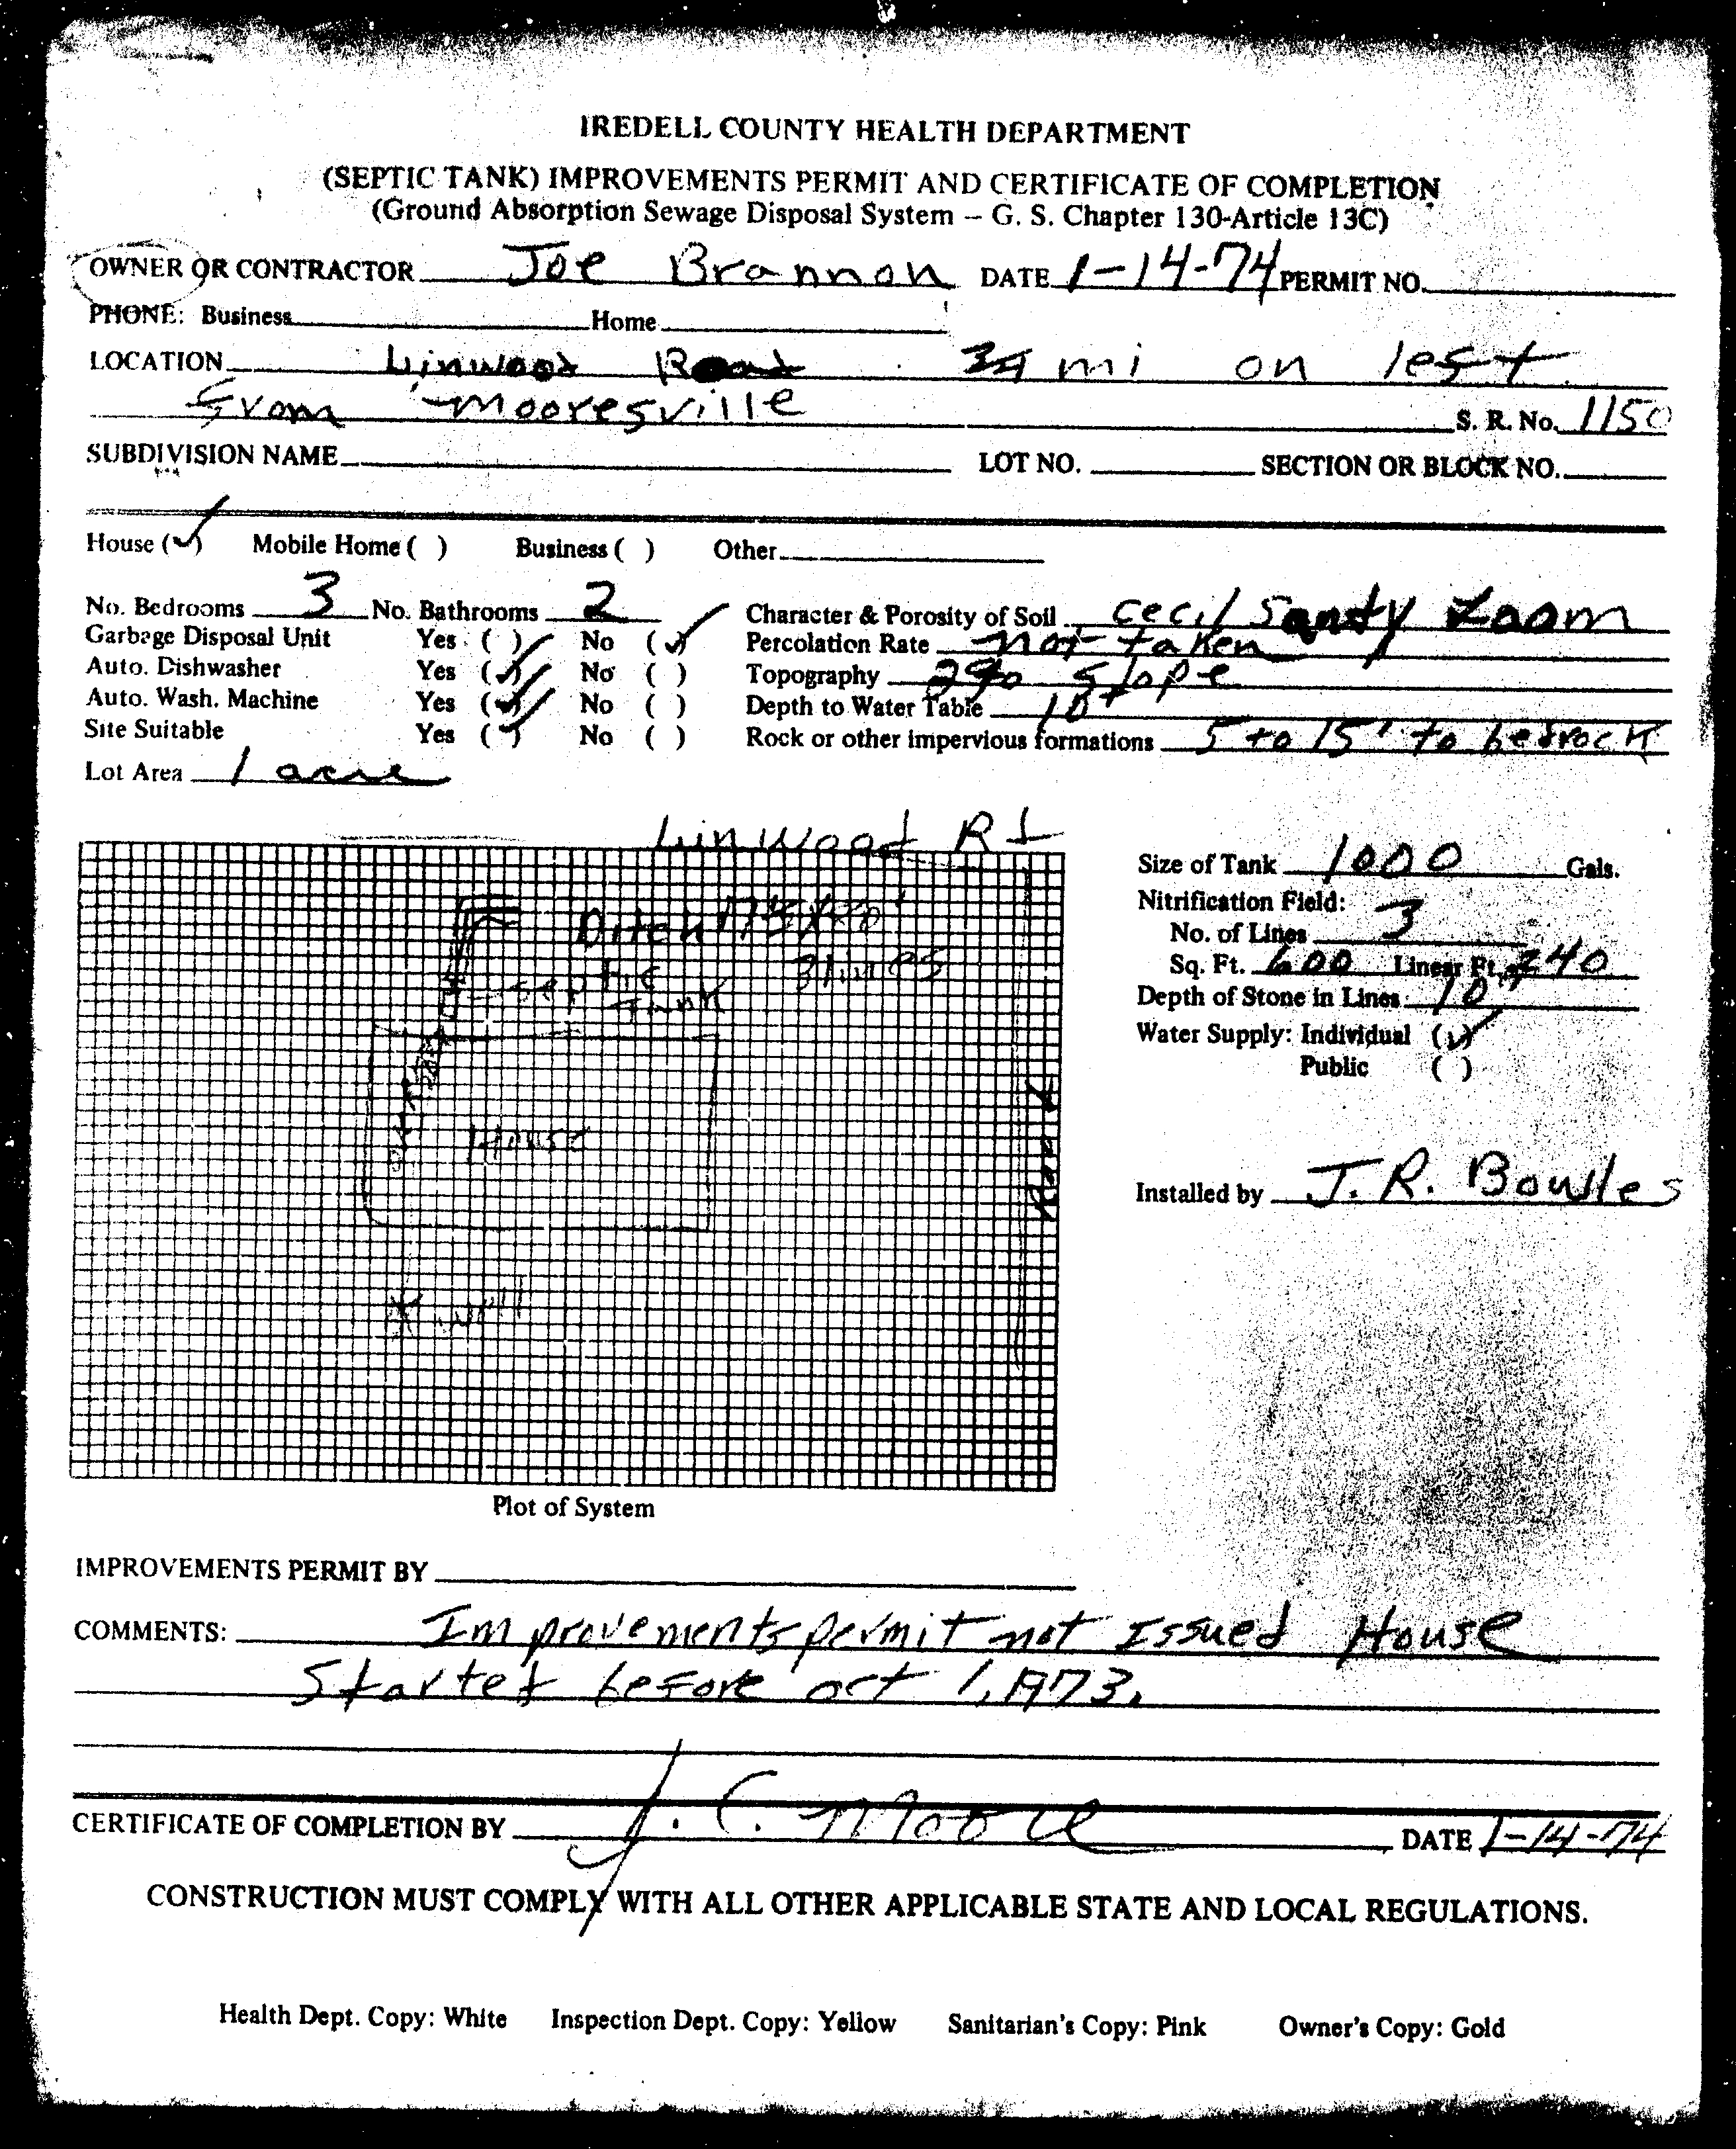 IREDELL COUNTY HEALTH DEPARTMENT
(SEPTIC TANK) IMPROVEMENTS PERMIT AND CERTIFICATE OF COMPLETION
(Ground Absorption Sewage Disposal System – G. S. Chapter 130-Article 13C)
OWNER OR CONTRACTOR Joe Brannon DATE 1-14-74 PERMIT NO.
PHONE: Business Home
LOCATION Linwood Road 3/4 mi on left
from Mooresville S. R. No. 1150
SUBDIVISION NAME LOT NO. SECTION OR BLOCK NO.
House (✓) Mobile Home ( ) Business ( ) Other
No. Bedrooms 3 No. Bathrooms 2 Character & Porosity of Soil Cecil Sandy Loam
Garbage Disposal Unit Yes ( ) No (✓) Percolation Rate not taken
Auto. Dishwasher Yes (✓) No ( ) Topography 2% slope
Auto. Wash. Machine Yes (✓) No ( ) Depth to Water Table 10+
Site Suitable Yes (✓) No ( ) Rock or other impervious formations 5 to 15' to bedrock
Lot Area 1 acre
Linwood Rd
Ditch
3 lines
septic
Tank
House
well
Road
Size of Tank 1000 Gals.
Nitrification Field:
No. of Lines 3
Sq. Ft. 600 Linear Ft. 240
Depth of Stone in Lines 10"
Water Supply: Individual (✓)
Public ( )
Installed by J. R. Bowles
Plot of System
IMPROVEMENTS PERMIT BY
COMMENTS: Improvements permit not Issued House
Started before oct 1, 1973.
CERTIFICATE OF COMPLETION BY J. C. Moore DATE 1-14-74
CONSTRUCTION MUST COMPLY WITH ALL OTHER APPLICABLE STATE AND LOCAL REGULATIONS.
Health Dept. Copy: White Inspection Dept. Copy: Yellow Sanitarian's Copy: Pink Owner's Copy: Gold